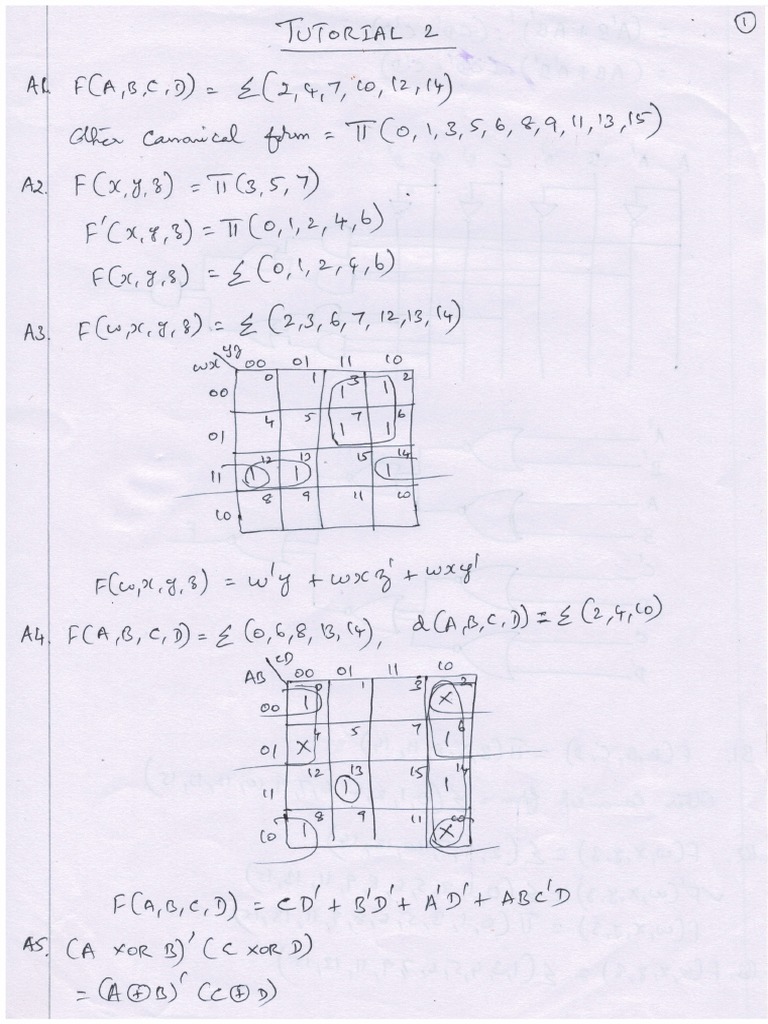 ①
TUTORIAL 2
A1. F(A,B,C,D) = Σ(2,4,7,10,12,14)
Other Canonical form = π(0,1,3,5,6,8,9,11,13,15)
A2. F(x,y,z) = π(3,5,7)
F'(x,y,z) = π(0,1,2,4,6)
F(x,y,z) = Σ(0,1,2,4,6)
A3. F(w,x,y,z) = Σ(2,3,6,7,12,13,14)
wx yz 00 01 11 10
00 0 1 3 1 2 1
01 4 5 7 1 6 1
11 12 1 13 1 15 14 1
10 8 9 11 10
F(w,x,y,z) = w'y + wxz' + wxy'
A4. F(A,B,C,D) = Σ(0,6,8,13,14), d(A,B,C,D) = Σ(2,4,10)
AB CD 00 01 11 10
00 0 1 1 3 2 X
01 4 X 5 7 6 1
11 12 13 1 15 14 1
10 8 1 9 11 10 X
F(A,B,C,D) = CD' + B'D' + A'D' + ABC'D
A5. (A XOR B)' (C XOR D)
= (A⊕B)' (C⊕D)